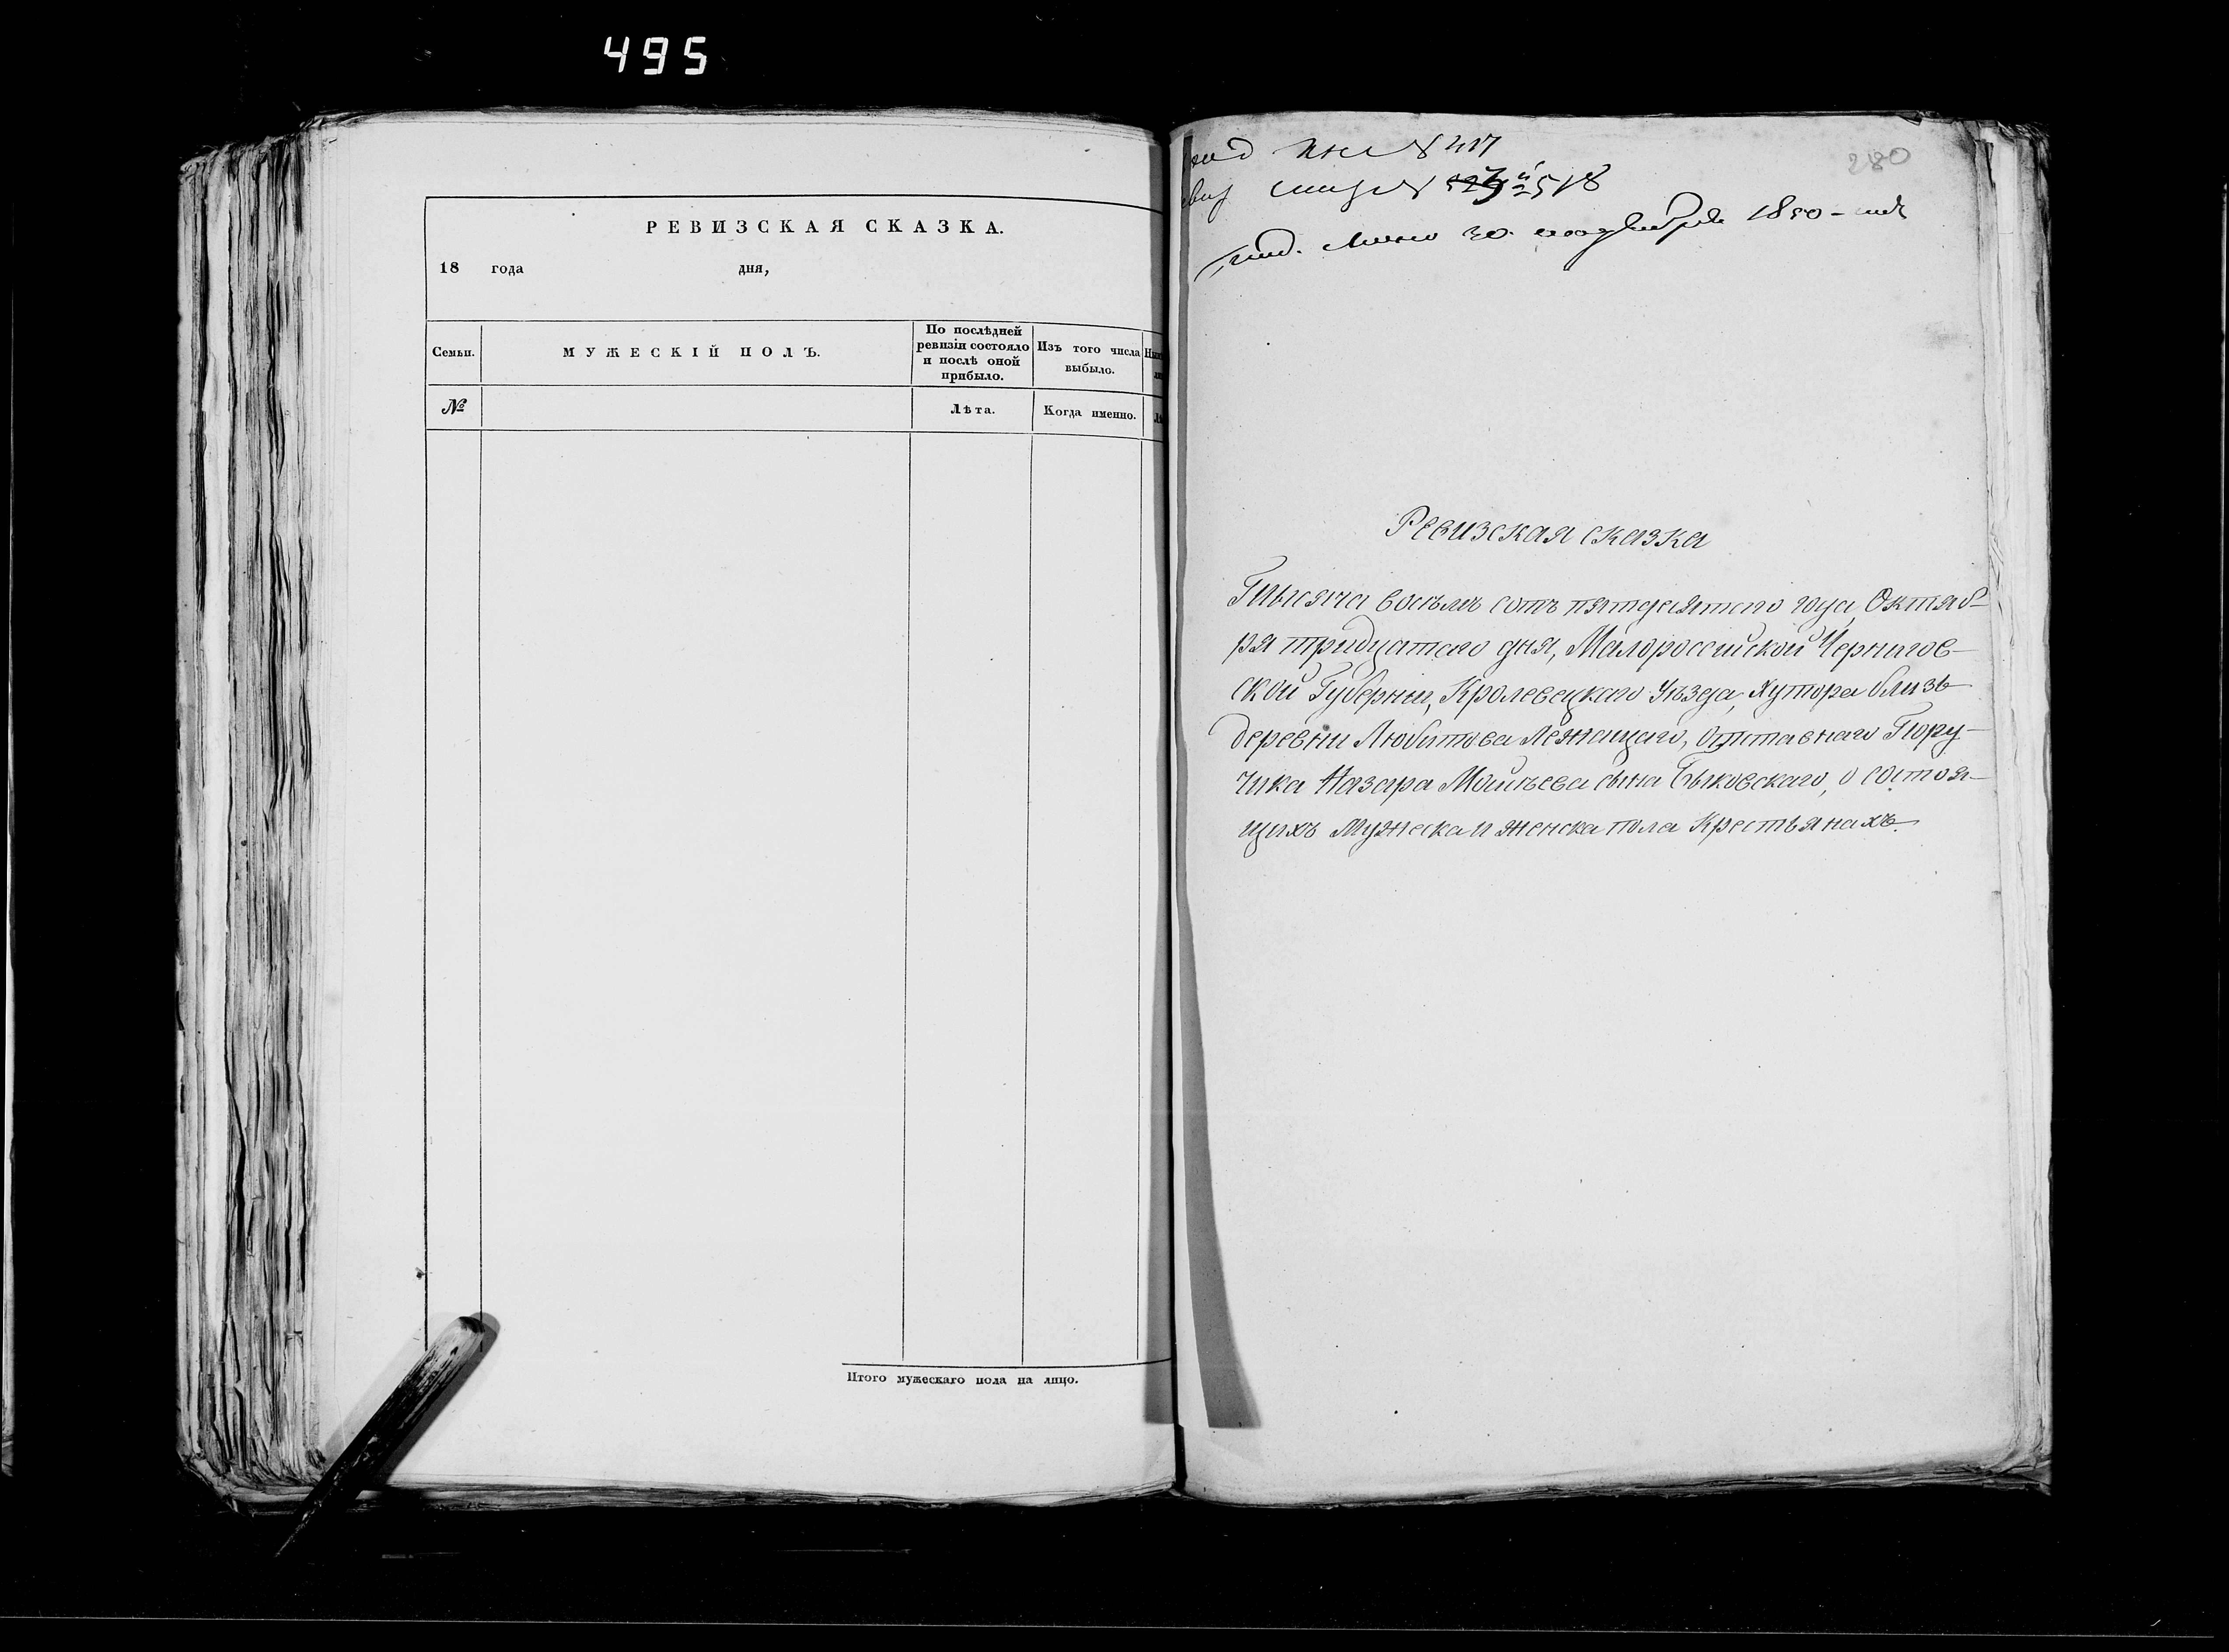 495
РЕВИЗСКАЯ СКАЗКА.
18 года дня,
Семьи.
МУЖЕСКІЙ ПОЛЪ.
По послѣдней ревизіи состояло и послѣ оной прибыло.
Изъ того числа выбыло.
№
Лѣта.
Когда именно.
Итого мужескаго пола на лицо.
280
417
518
30 1850
Ревизская сказка
Тысяча восемь сотъ пятдесятого года, Октяб-
ря тридцатого дня, Малороссийской Чернигов-
ской Губернии, Кролевецкаго Уѣзда, Хутора близь
деревни Любитова лежащаго, Отставнаго Пору-
чика Назара Моисѣева сына Быковскаго, о состоя-
щихъ Мужеска и женска пола Крестьянахъ.